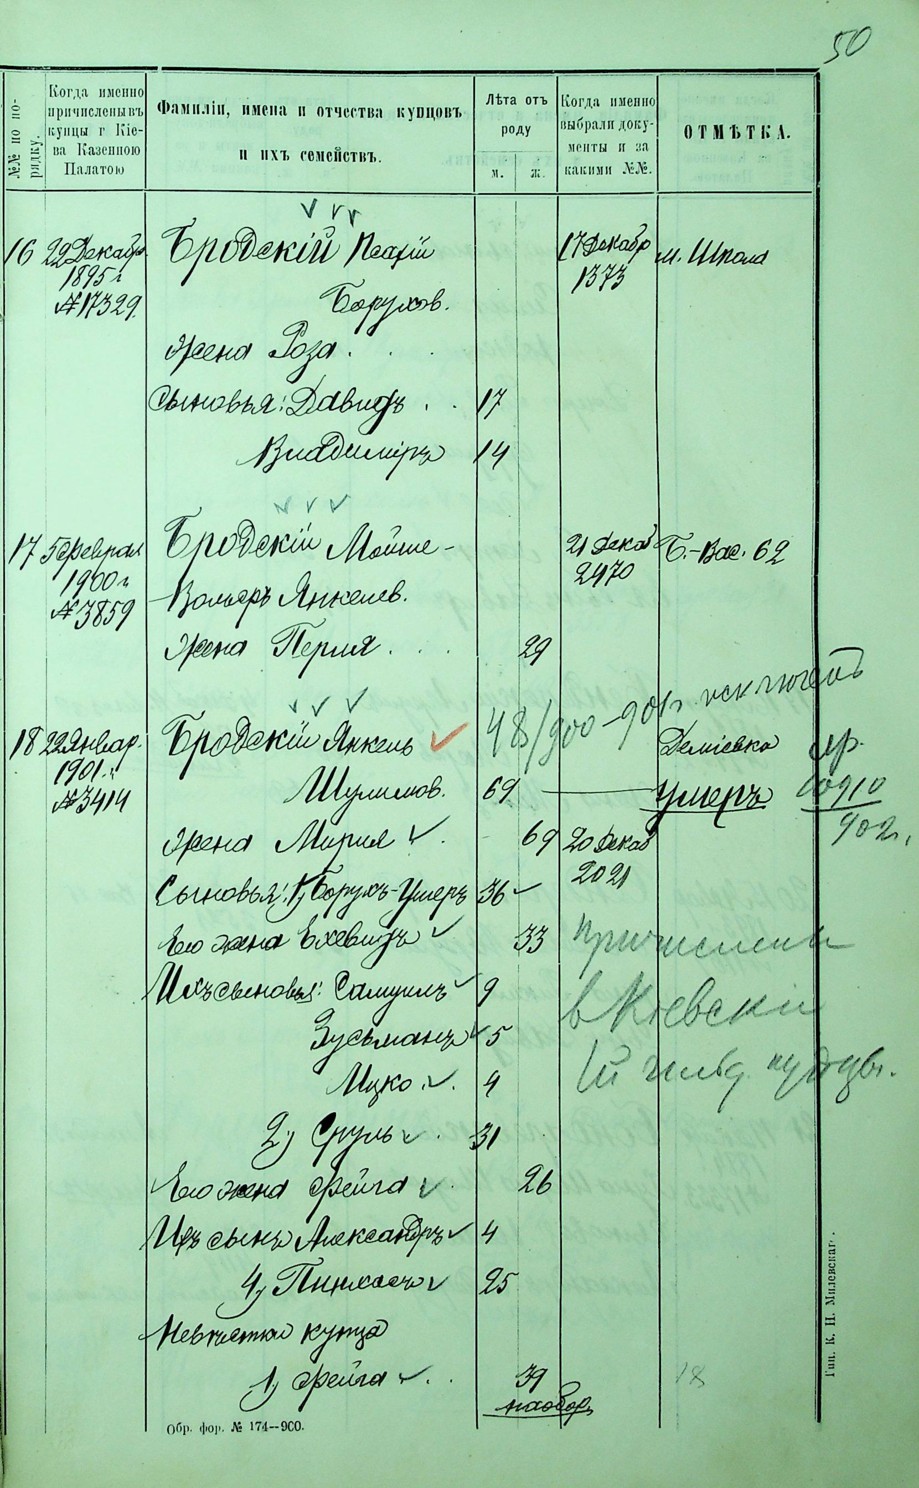 50
№№ по по-
рядку.
Когда именно
причислены въ
купцы г Кіе-
ва Казенною
Палатою
Фамиліи, имена и отчества купцовъ
и ихъ семействъ.
Лѣта отъ
роду
м. ж.
Когда именно
выбрали доку-
менты и за
какими №№.
ОТМѢТКА.
16 22 Декабр. Бродскій Исаакій 17 Декабр м. Шпола
1895 г 1373
№17329. Борухов.
Жена Роза . . .
Сыновья: Давидъ . . 17
Владиміръ 14
17 5 Февраля Бродскій Мойше- 21 Декаб Б.-Вас. 62
1900 г 2470
№3859 Вольфъ Янкелев.
Жена Перля . . . 29
48/900-901 г. исключить
18 22 Январ. Бродскій Янкель Деміевка
1901 г.
№3414 Шулимов. 69 умеръ 10910
902 г.
Жена Мирия . 69 20 Декаб
2021
Сыновья: 1, Борухъ-Умеръ 36
Его жена Ехевидъ 33 причислены
Ихъ сыновья: Самуилъ 9
в Кіевскіе
Зусьманъ 5
Ицко . . 4 1й гильд. купцы.
2, Сруль . 31
Его жена Фейга . 26
Ихъ сынъ Александръ 4
4, Пинхасъ 25
Невѣстка купца
1, Фейга . . 39 18
наобор.
Обр. фор. № 174—900.
Тип. К. Н. Милевскаг.